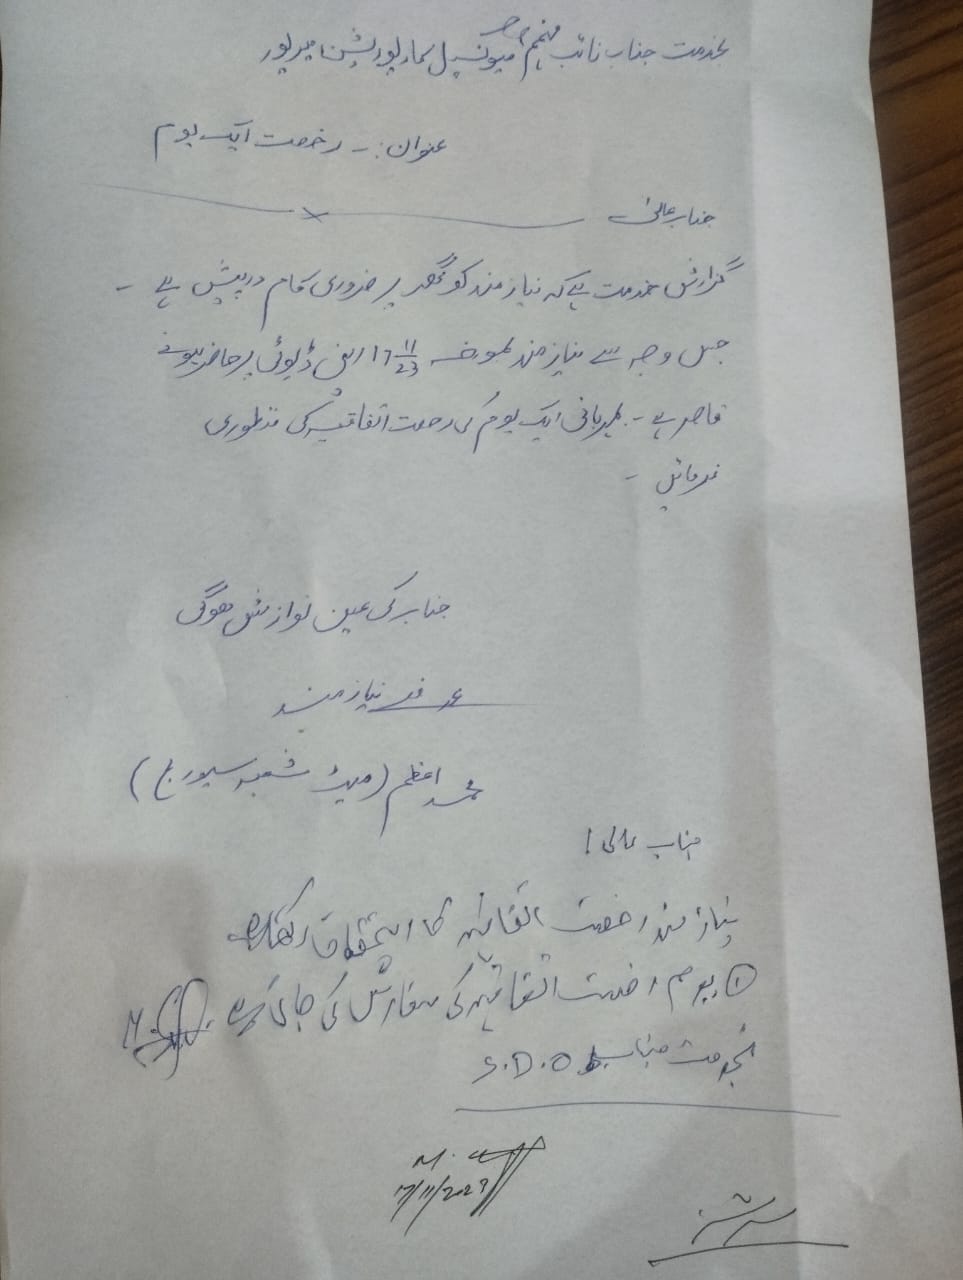 بخدمت جناب نائب مہتمم صاحب میونسپل کارپوریشن میرپور
عنوان:۔ رخصت ایک یوم
جناب عالیٰ
گزارش خدمت ہے کہ نیازمند کو گھر پر ضروری کام درپیش ہے ۔
جس وجہ سے نیازمند بمورخہ 17 11/23 اپنی ڈیوٹی پر حاضر ہونے
قاصر ہے ۔ مہربانی ایک یوم کی رخصت اتفاقیہ کی منظوری
فرمائیں ۔
جناب کی عین نوازش ہوگی
عرضے نیازمند
محمد اعظم (میٹ شعبہ سیوریج)
جناب عالی !
نیازمند رخصت اتفاقیہ کا استحقاق رکھتا ہے
① یوم رخصت اتفاقیہ کی سفارش کی جاتی ہے
بخدمت جناب S.D.O
M.
17/11/2023